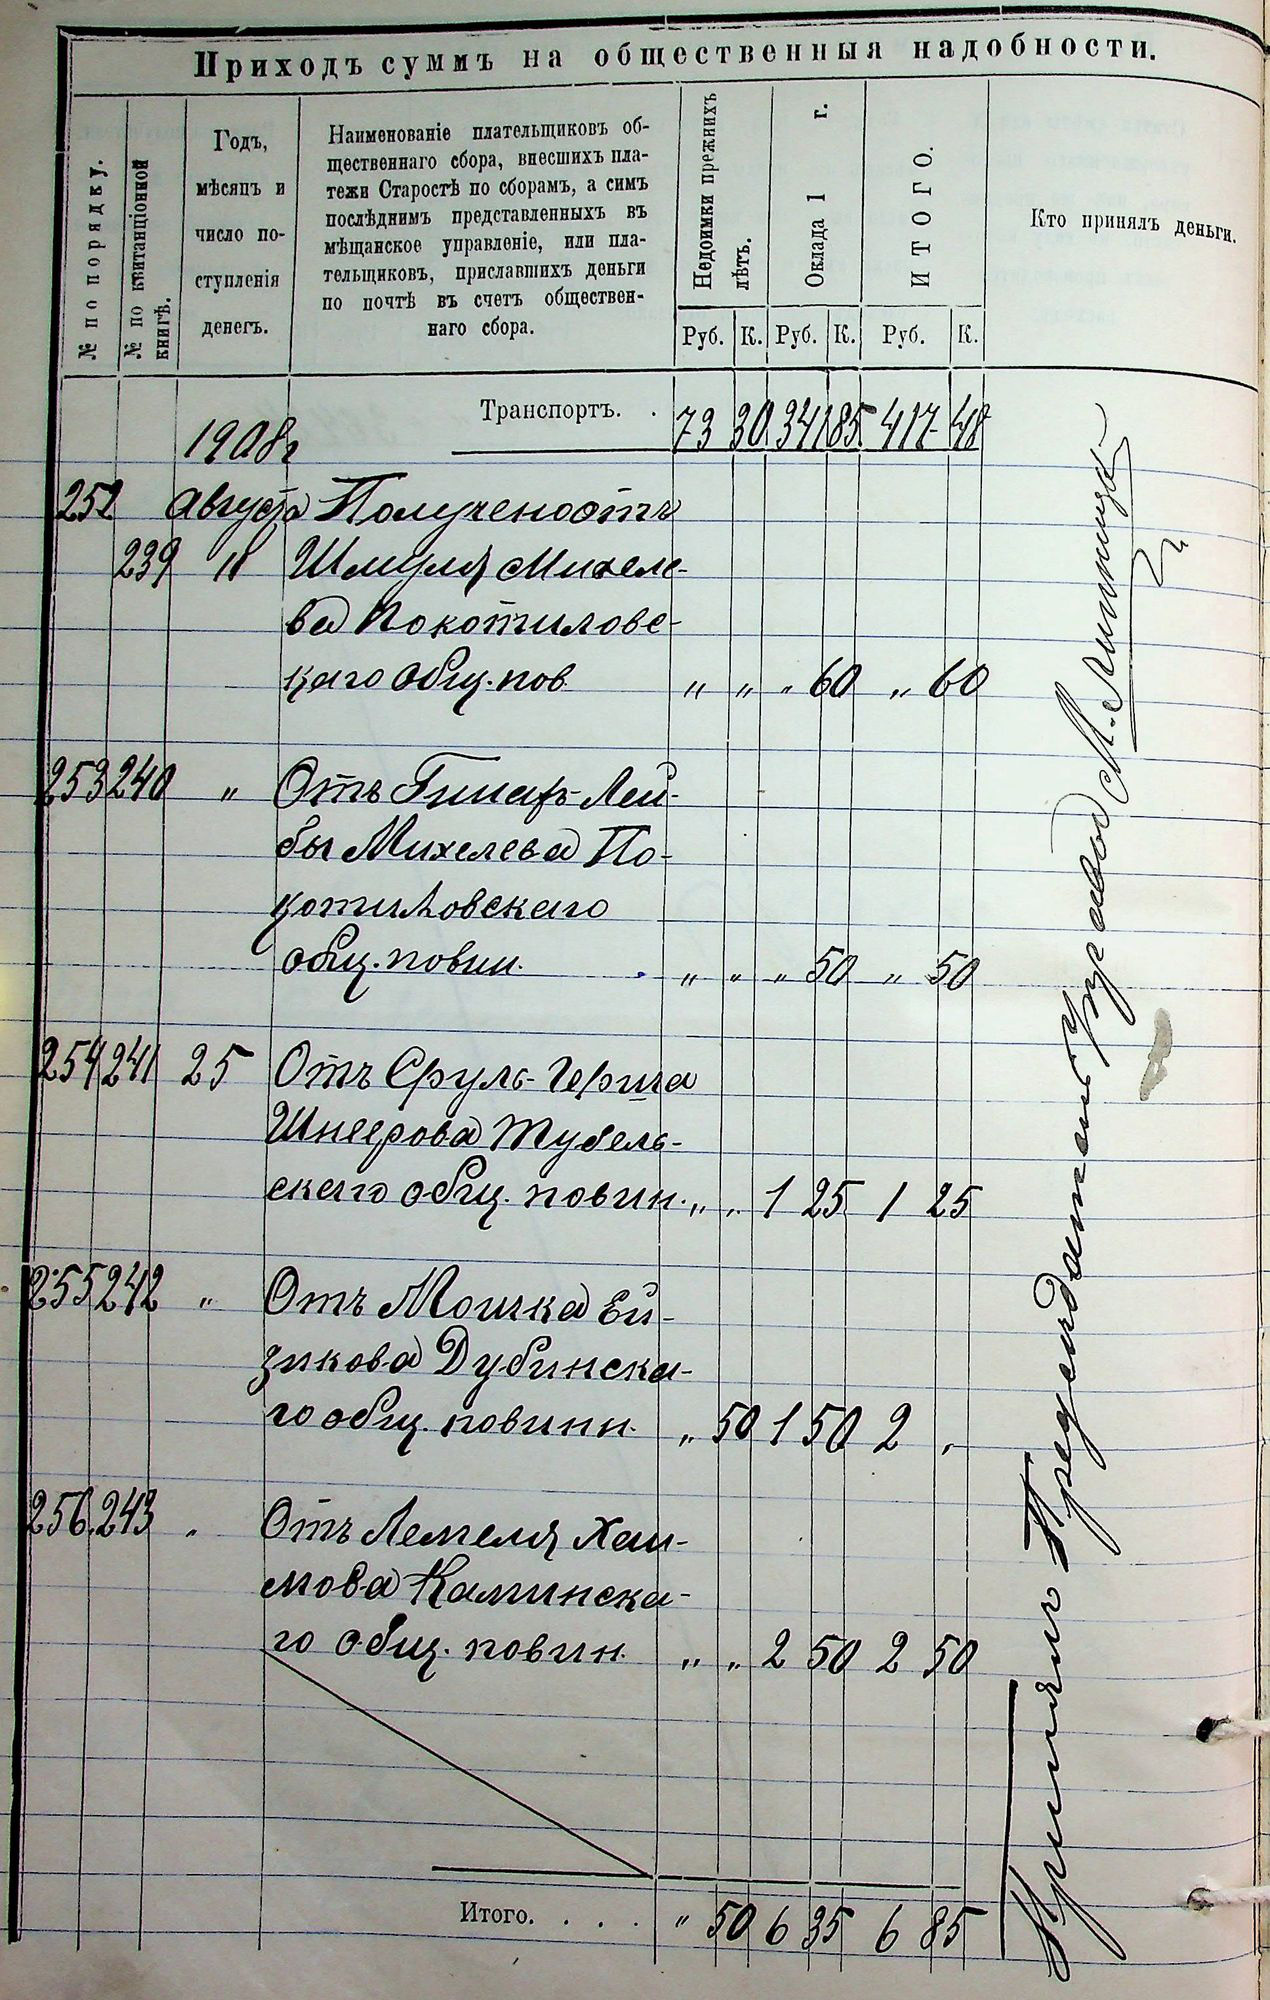 Приходъ суммъ на общественныя надобности.
№ по порядку.
№ по квитанціонной
книгѣ.
Годъ,
мѣсяцъ и
число по-
ступленія
денегъ.
Наименованіе плательщиковъ об-
щественнаго сбора, внесшихъ пла-
тежи Старостѣ по сборамъ, а симъ
послѣднимъ представленныхъ въ
мѣщанское управленіе, или пла-
тельщиковъ, приславшихъ деньги
по почтѣ въ счетъ обществен-
наго сбора.
Недоимки прежнихъ
лѣтъ.
Оклада 1 г.
ИТОГО.
Кто принялъ деньги.
Руб. К. Руб. К. Руб. К.
Транспортъ. . 73 30 341 85 417 48
1908 г
252 Августа Получено отъ
239 11 Шмуля Михеле-
ва Покотиловс-
каго общ. пов. „ „ „ 60 „ 60
253 240 „ Отъ Лей-
бы Михелева По-
котиловскаго
общ. повин. „ „ „ 50 „ 50
254 241 25 Отъ Сруль-Герша
Шнеерова Тубель-
скаго общ. повин. „ „ 1 25 1 25
255 242 „ Отъ Мошка Ей-
зикова Дубинска-
го общ. повинн. „ 50 1 50 2 „
256 243 „ Отъ Лемеля Хаи-
мова Каминска-
го общ. повин. „ „ 2 50 2 50
Итого. . . . . „ 50 6 35 6 85
Принялъ Председатель Управы М.